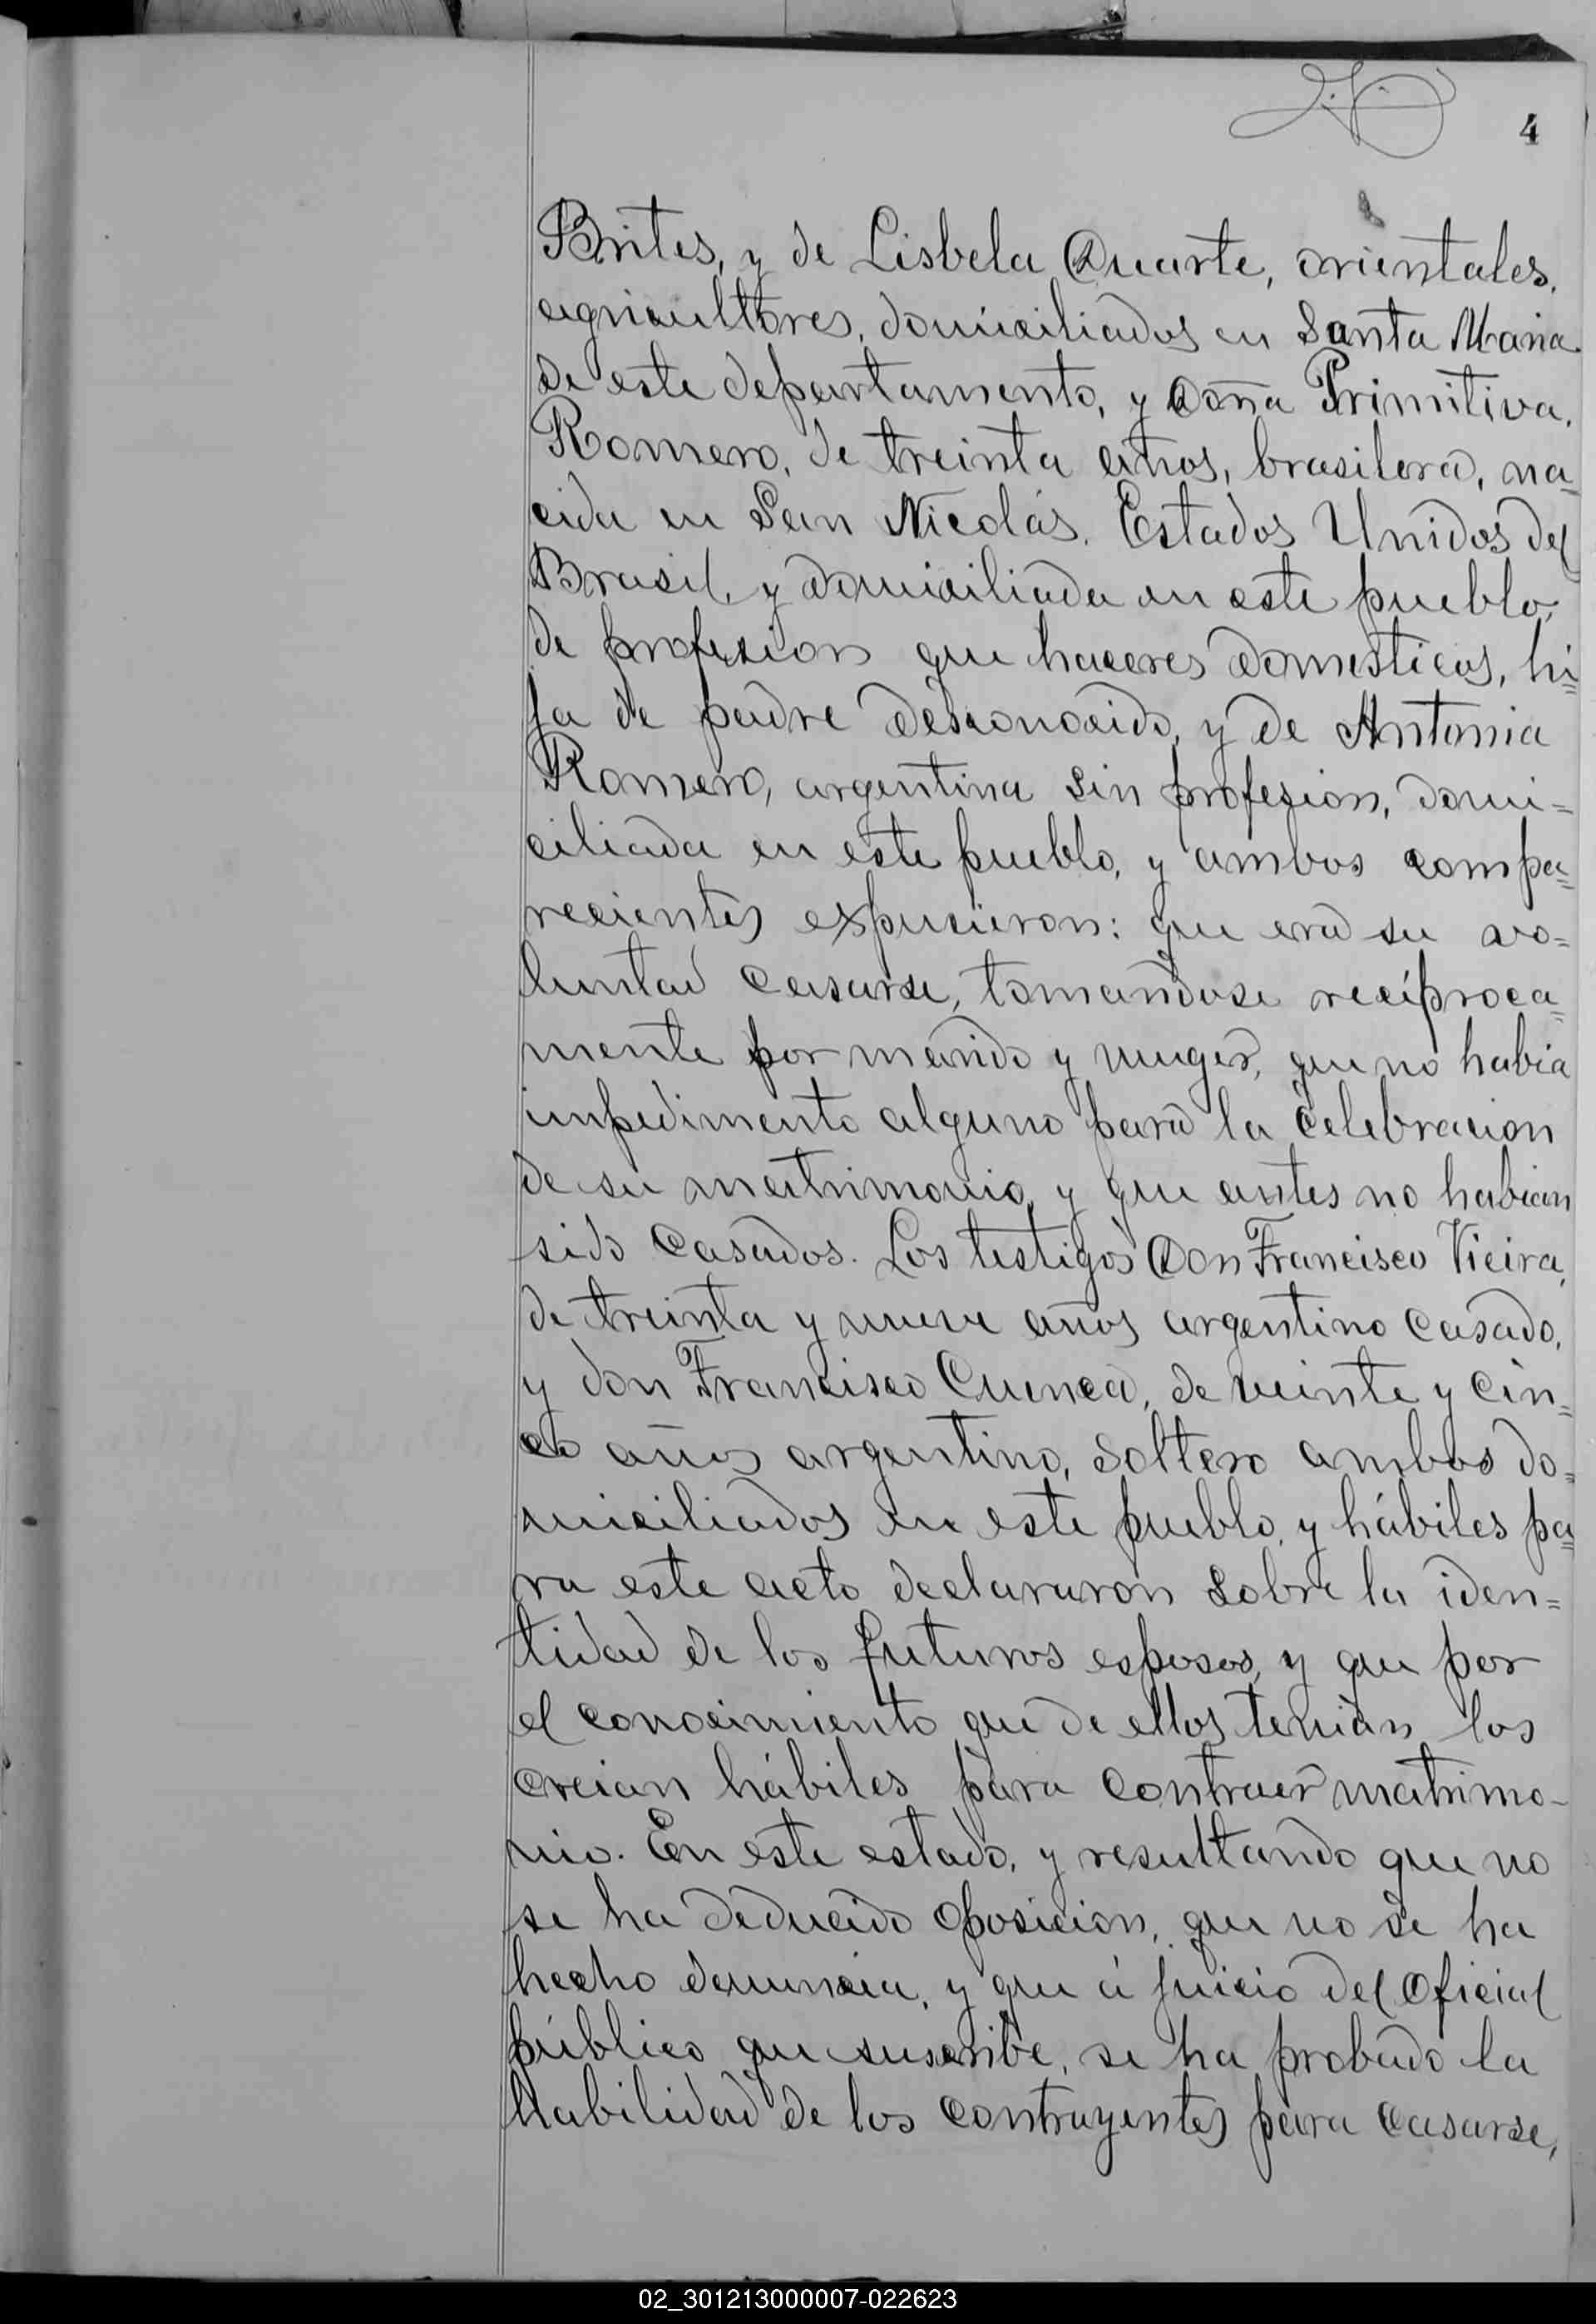 4
Brites, y de Lisbela Duarte, orientales,
agricultores, domiciliados en Santa Maria
de este departamento, y Doña Primitiva
Romero, de treinta años, brasilera, na-
cida en San Nicolás, Estados Unidos del
Brasil, y domiciliada en este pueblo,
de profesion que haceres domesticos, hi=
ja de padre desconocido, y de Antonia
Romero, argentina sin profesion, domi=
ciliada en este pueblo, y ambos compa=
recientes expusieron: que era su vo=
luntad casarse, tomandose recíproca=
mente por marido y muger, que no habia
impedimento alguno para la celebracion
de su matrimonio, y que antes no habian
sido casados. Los testigos Don Francisco Vieira,
de treinta y nueve años argentino casado,
y don Francisco Cuenca, de veinte y cin=
co años argentino, soltero ambos do=
miciliados en este pueblo, y hábiles pa=
ra este acto declararon sobre la iden=
tidad de los futuros esposos, y que por
el conocimiento que de ellos tenian los
creian hábiles para contraer matrimo-
nio. En este estado, y resultando que no
se ha deducido oposicion, que no se ha
hecho denuncia, y que á juicio del Oficial
público que suscribe, se ha probado la
habilidad de los contrayentes para casarse,
02_301213000007-022623